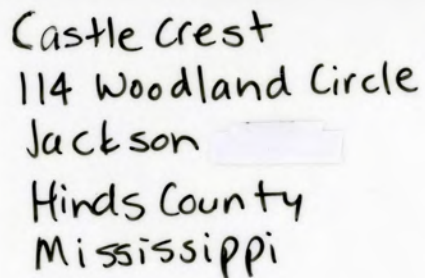 Castle Crest
114 Woodland Circle
Jackson
Hinds County
Mississippi